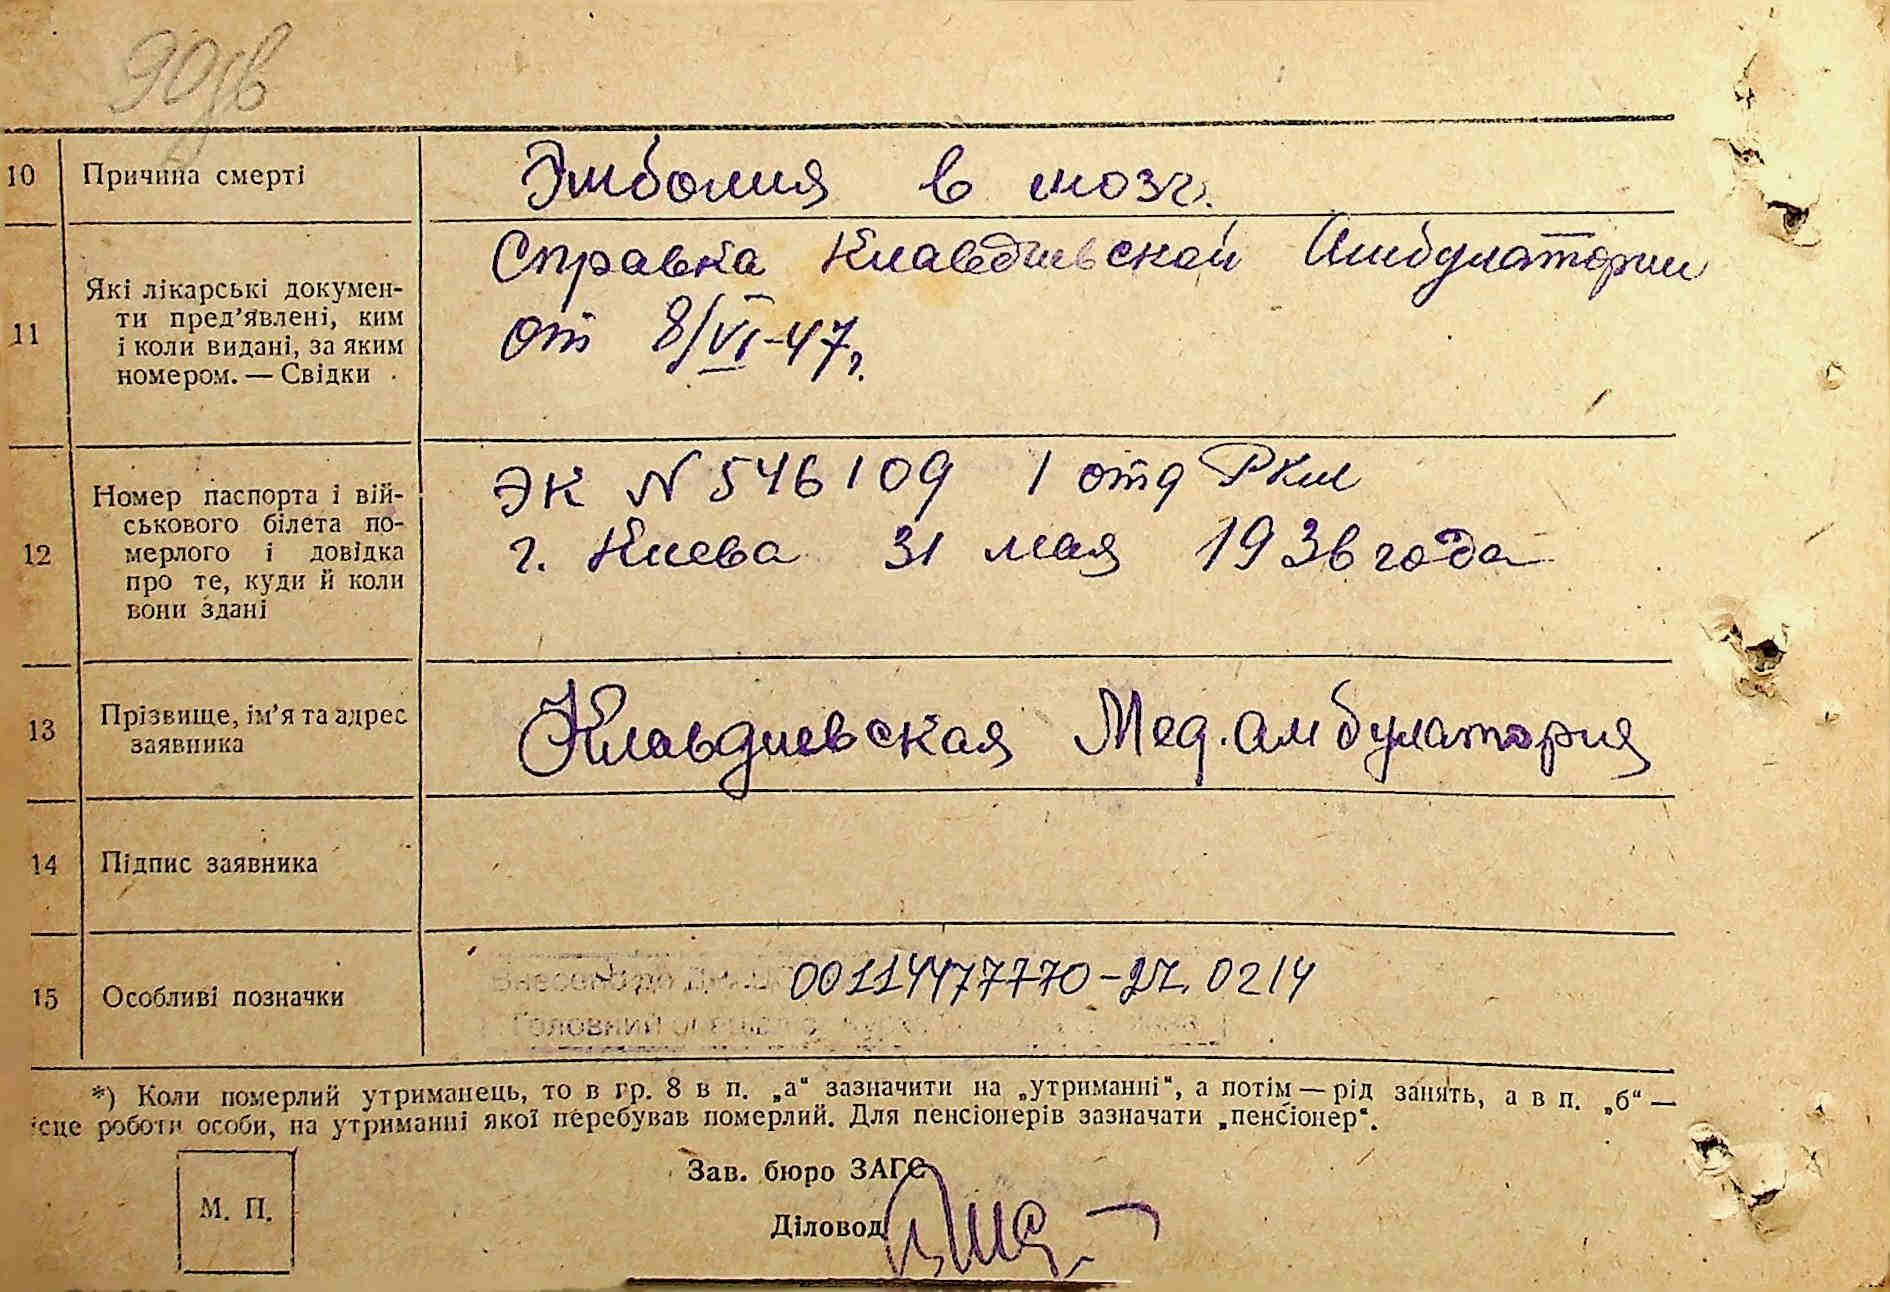 90зв
10 Причина смерті Эмболия в мозг.
11 Які лікарські докумен-
ти пред’явлені, ким
і коли видані, за яким
номером. — Свідки
Справка Клавдиевской Амбулатории
от 8/VI-47г.
12 Номер паспорта і вій-
ськового білета по-
мерлого і довідка
про те, куди й коли
вони здані
ЭК N 546109 1 отд РКМ
г. Киева 31 мая 1936 года
13 Прізвище, ім’я та адрес
заявника
Клавдиевская Мед. амбулатория
14 Підпис заявника
15 Особливі позначки 00114477770-27.0214
*) Коли померлий утриманець, то в гр. 8 в п. „а“ зазначити на „утриманні“, а потім — рід занять, а в п. „б“ —
ісце роботи особи, на утриманні якої перебував померлий. Для пенсіонерів зазначати „пенсіонер“.
Зав. бюро ЗАГС
М. П.
Діловод